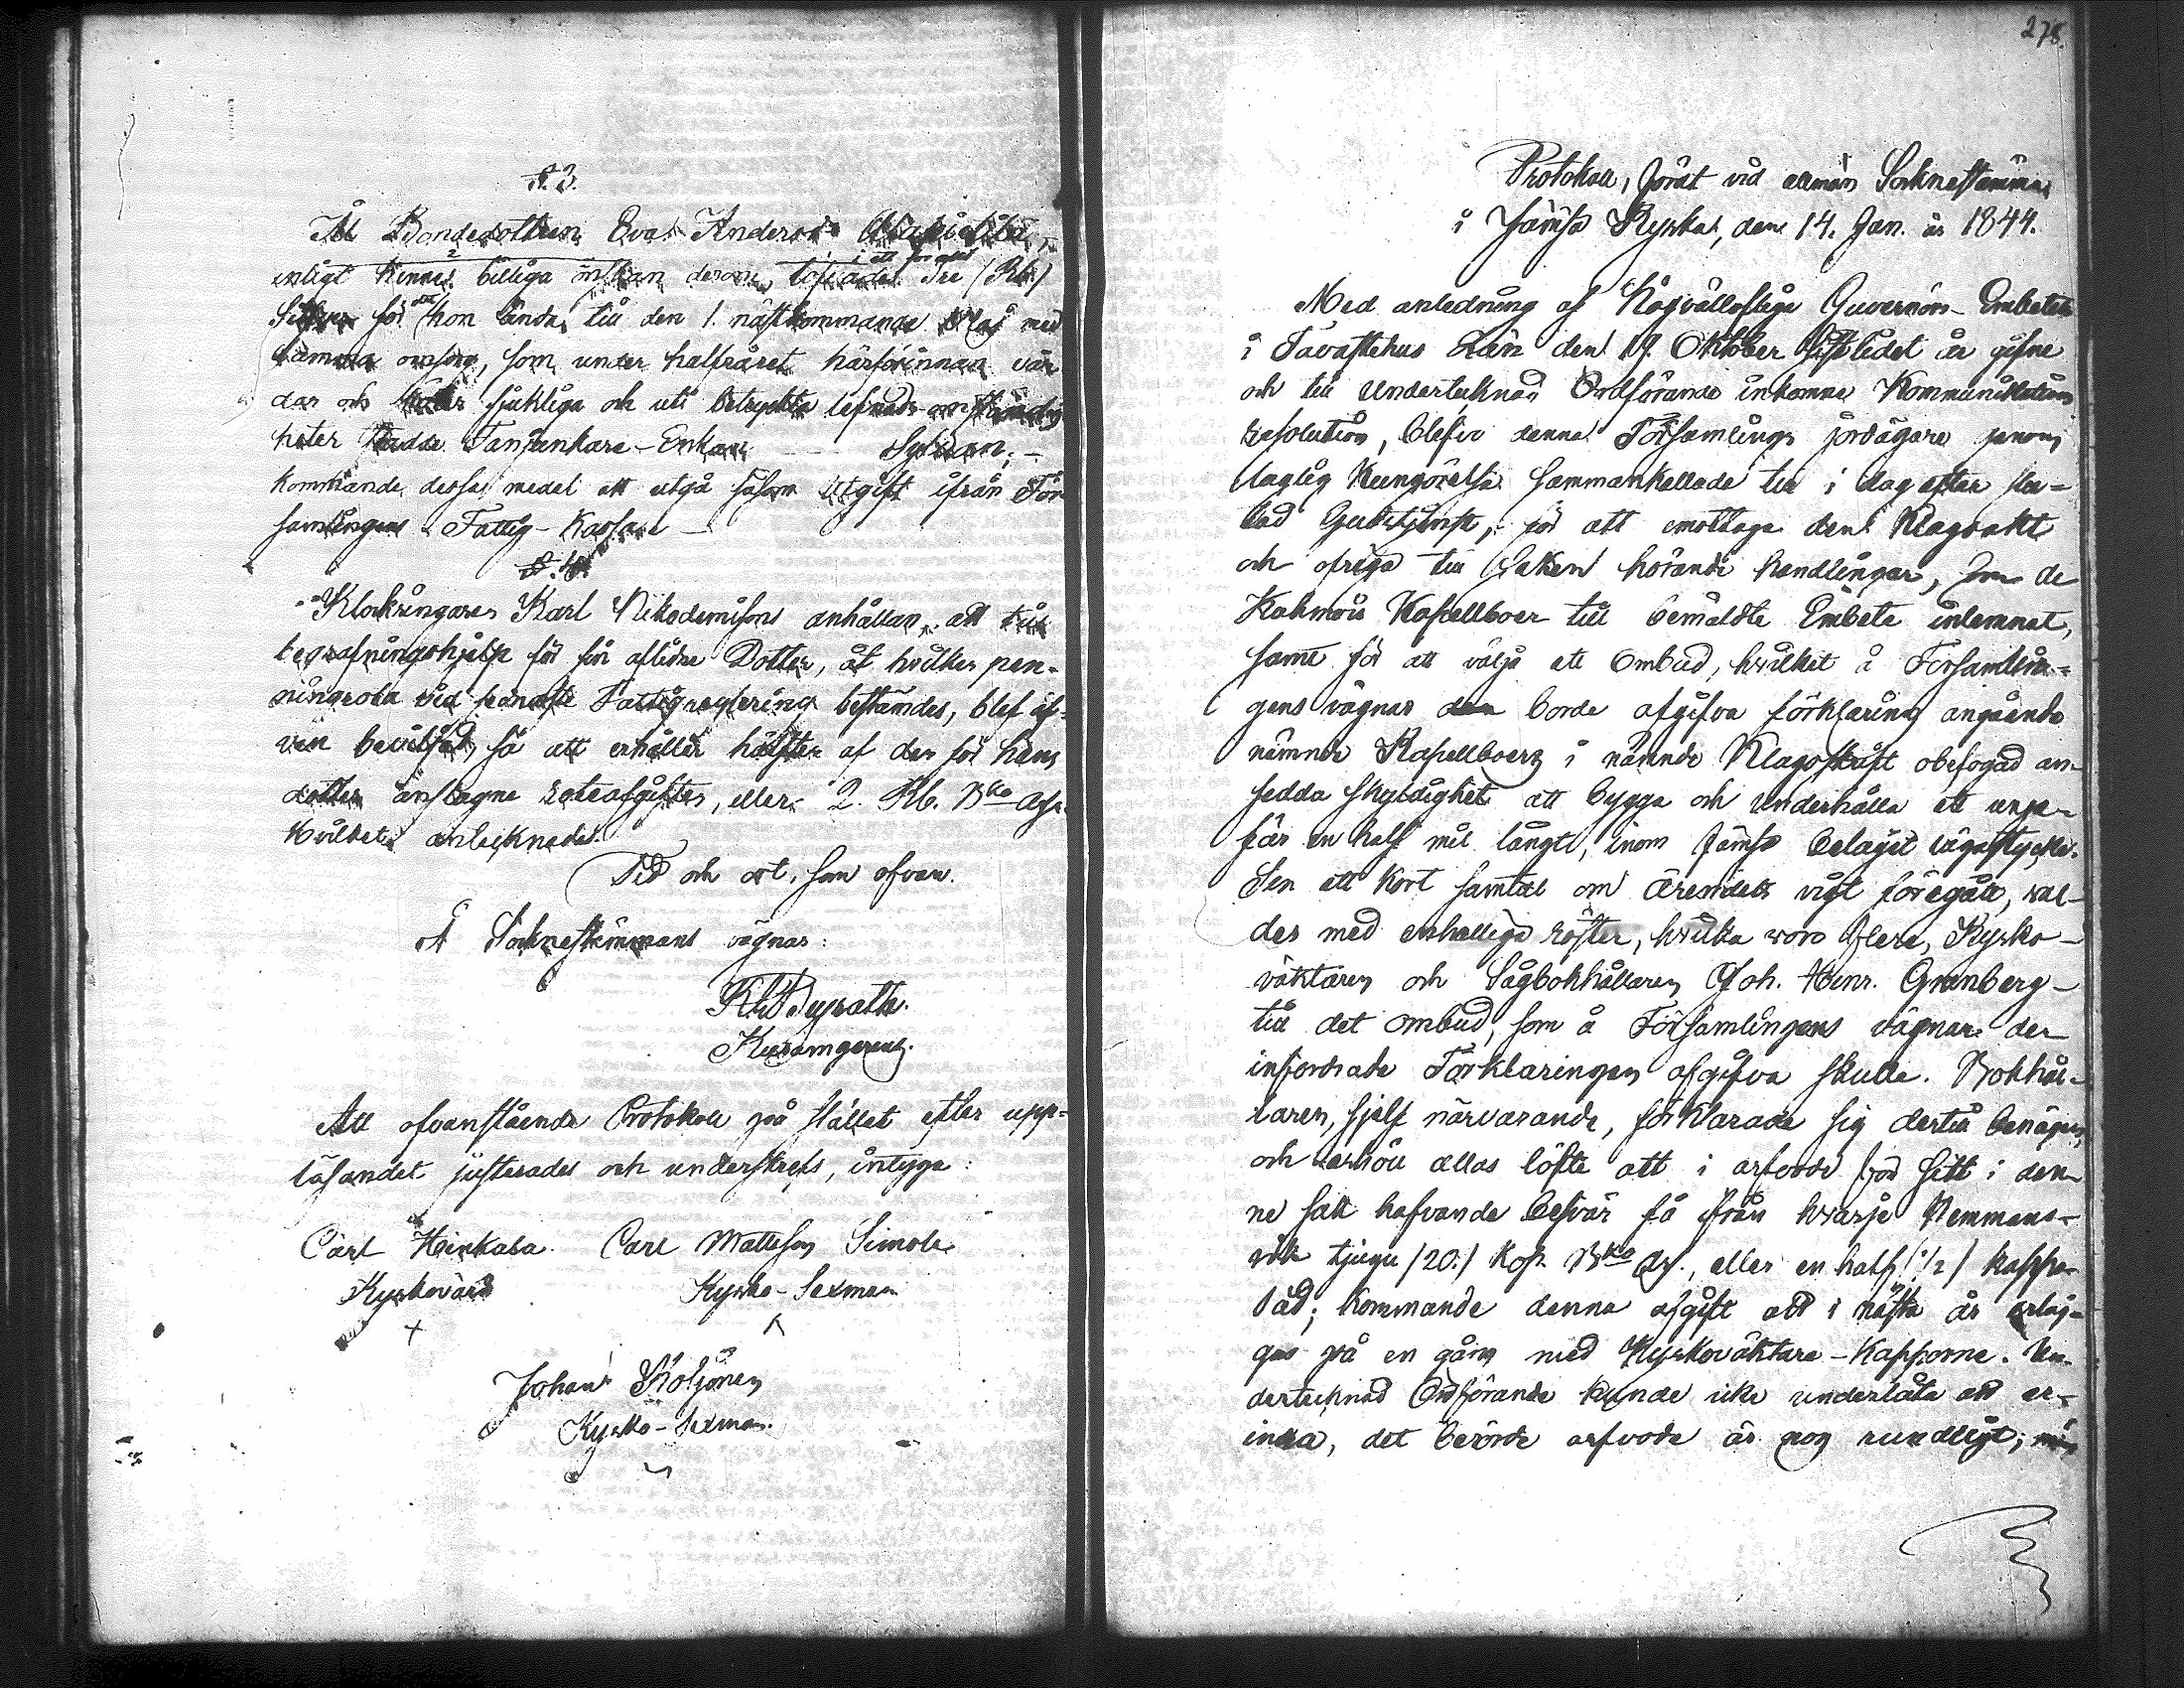 §. 3.
Åt Bondedottren Eva Andersd:r
enligt hennes billiga önskan derom, tre /3 Rb/
Silfver för att hon ända till den 1. nästkommande Maj med
samma omsorg, som under halfåret härförinnan vår-
dar och sköter sjukliga och uti betryckta lefnads-omständig
heter stadda Tanjunkare-Enkan Sydman; -
kommande dessa medel att utgå såsom utgift ifrån För-
samlingens Fattig-Kassa. -
§. 4.
Klockringaren Karl Nikodemissons anhållan, att till
begrafningshjelp för sin aflidne Dotter, åt hvilken pen-
ningrota vid senaste Fattigreglering bestämdes, blef äf-
ven beviljad, så att erhåller hälften af den för hans
dotter anslagne roteafgiften, eller 2. Rb. Bko Ass.
Hvilket antecknades.
Tid och ort, som ofvan.
Å Socknestämmans vägnar:
Att ofvanstående Protokoll på stället efter upp-
läsandet justerades och underskrefs, intyga:
Carl Heinkala. Carl Mattsson Simola
Kyrkovärd Kyrko-Sexman
Johan Koljonen
Kyrko-Sexman.
278.
Protokoll, fördt vid allmän Socknestämma
i Jämsä Kyrka, den 14. Jan. år 1844.
Med anledning af Högvällofliga Guvernörs-Embetets
i Tavastehus Län den 19. Oktober sistledet år gifne
och till Undertecknad Ordförande inkomne Kommunikations
resolution, blefvo denna Församlings jordägare genom
laglig Kungörelse sammankallade till i dag efter slu-
tad Gudstjenst, för att emottaga den Klagoakt
och öfriga till saken hörande handlingar, som de
Kuhmois Kapellboer till bemäldte Embete inlemnat,
samt för att välja ett Ombud, hvilket å Församlin-
gens vägnar borde afgifva förklaring angående
nämnde Kapellboers i nämnde Klagoskrift obefogad an-
sedda skyldighet att bygga och underhålla ett unge-
fär en half mil långt, inom Jämsä beläget vägastycke.
Sen ett kort samtal om ärendets vigt föregått, val-
des med enhällige röster, hvilka voro flere, Kyrko-
väktaren och Sågbokhållaren Joh. Henr. Granberg -
till det ombud, som å Församlingens vägnar den
infordrade Förklaringen afgifva skulle. Bokhål-
laren, sjelf närvarande, förklarade sig dertill benägen,
och erhöll allas löfte att i arfvode för sitt i den-
ne sak hafvande besvär få ifrån hvarje Hemmans-
rök tjugu /20./ Kop. Bko Ass., eller en half /½/ kappe
säd; kommande denna afgift att i nästa år erläg-
gas på en gång med Kyrkoväktare-Kapporne. Un-
dertecknad Ordförande kunde icke underlåta att er-
inra, det berörde arfvode är nog rundligt;